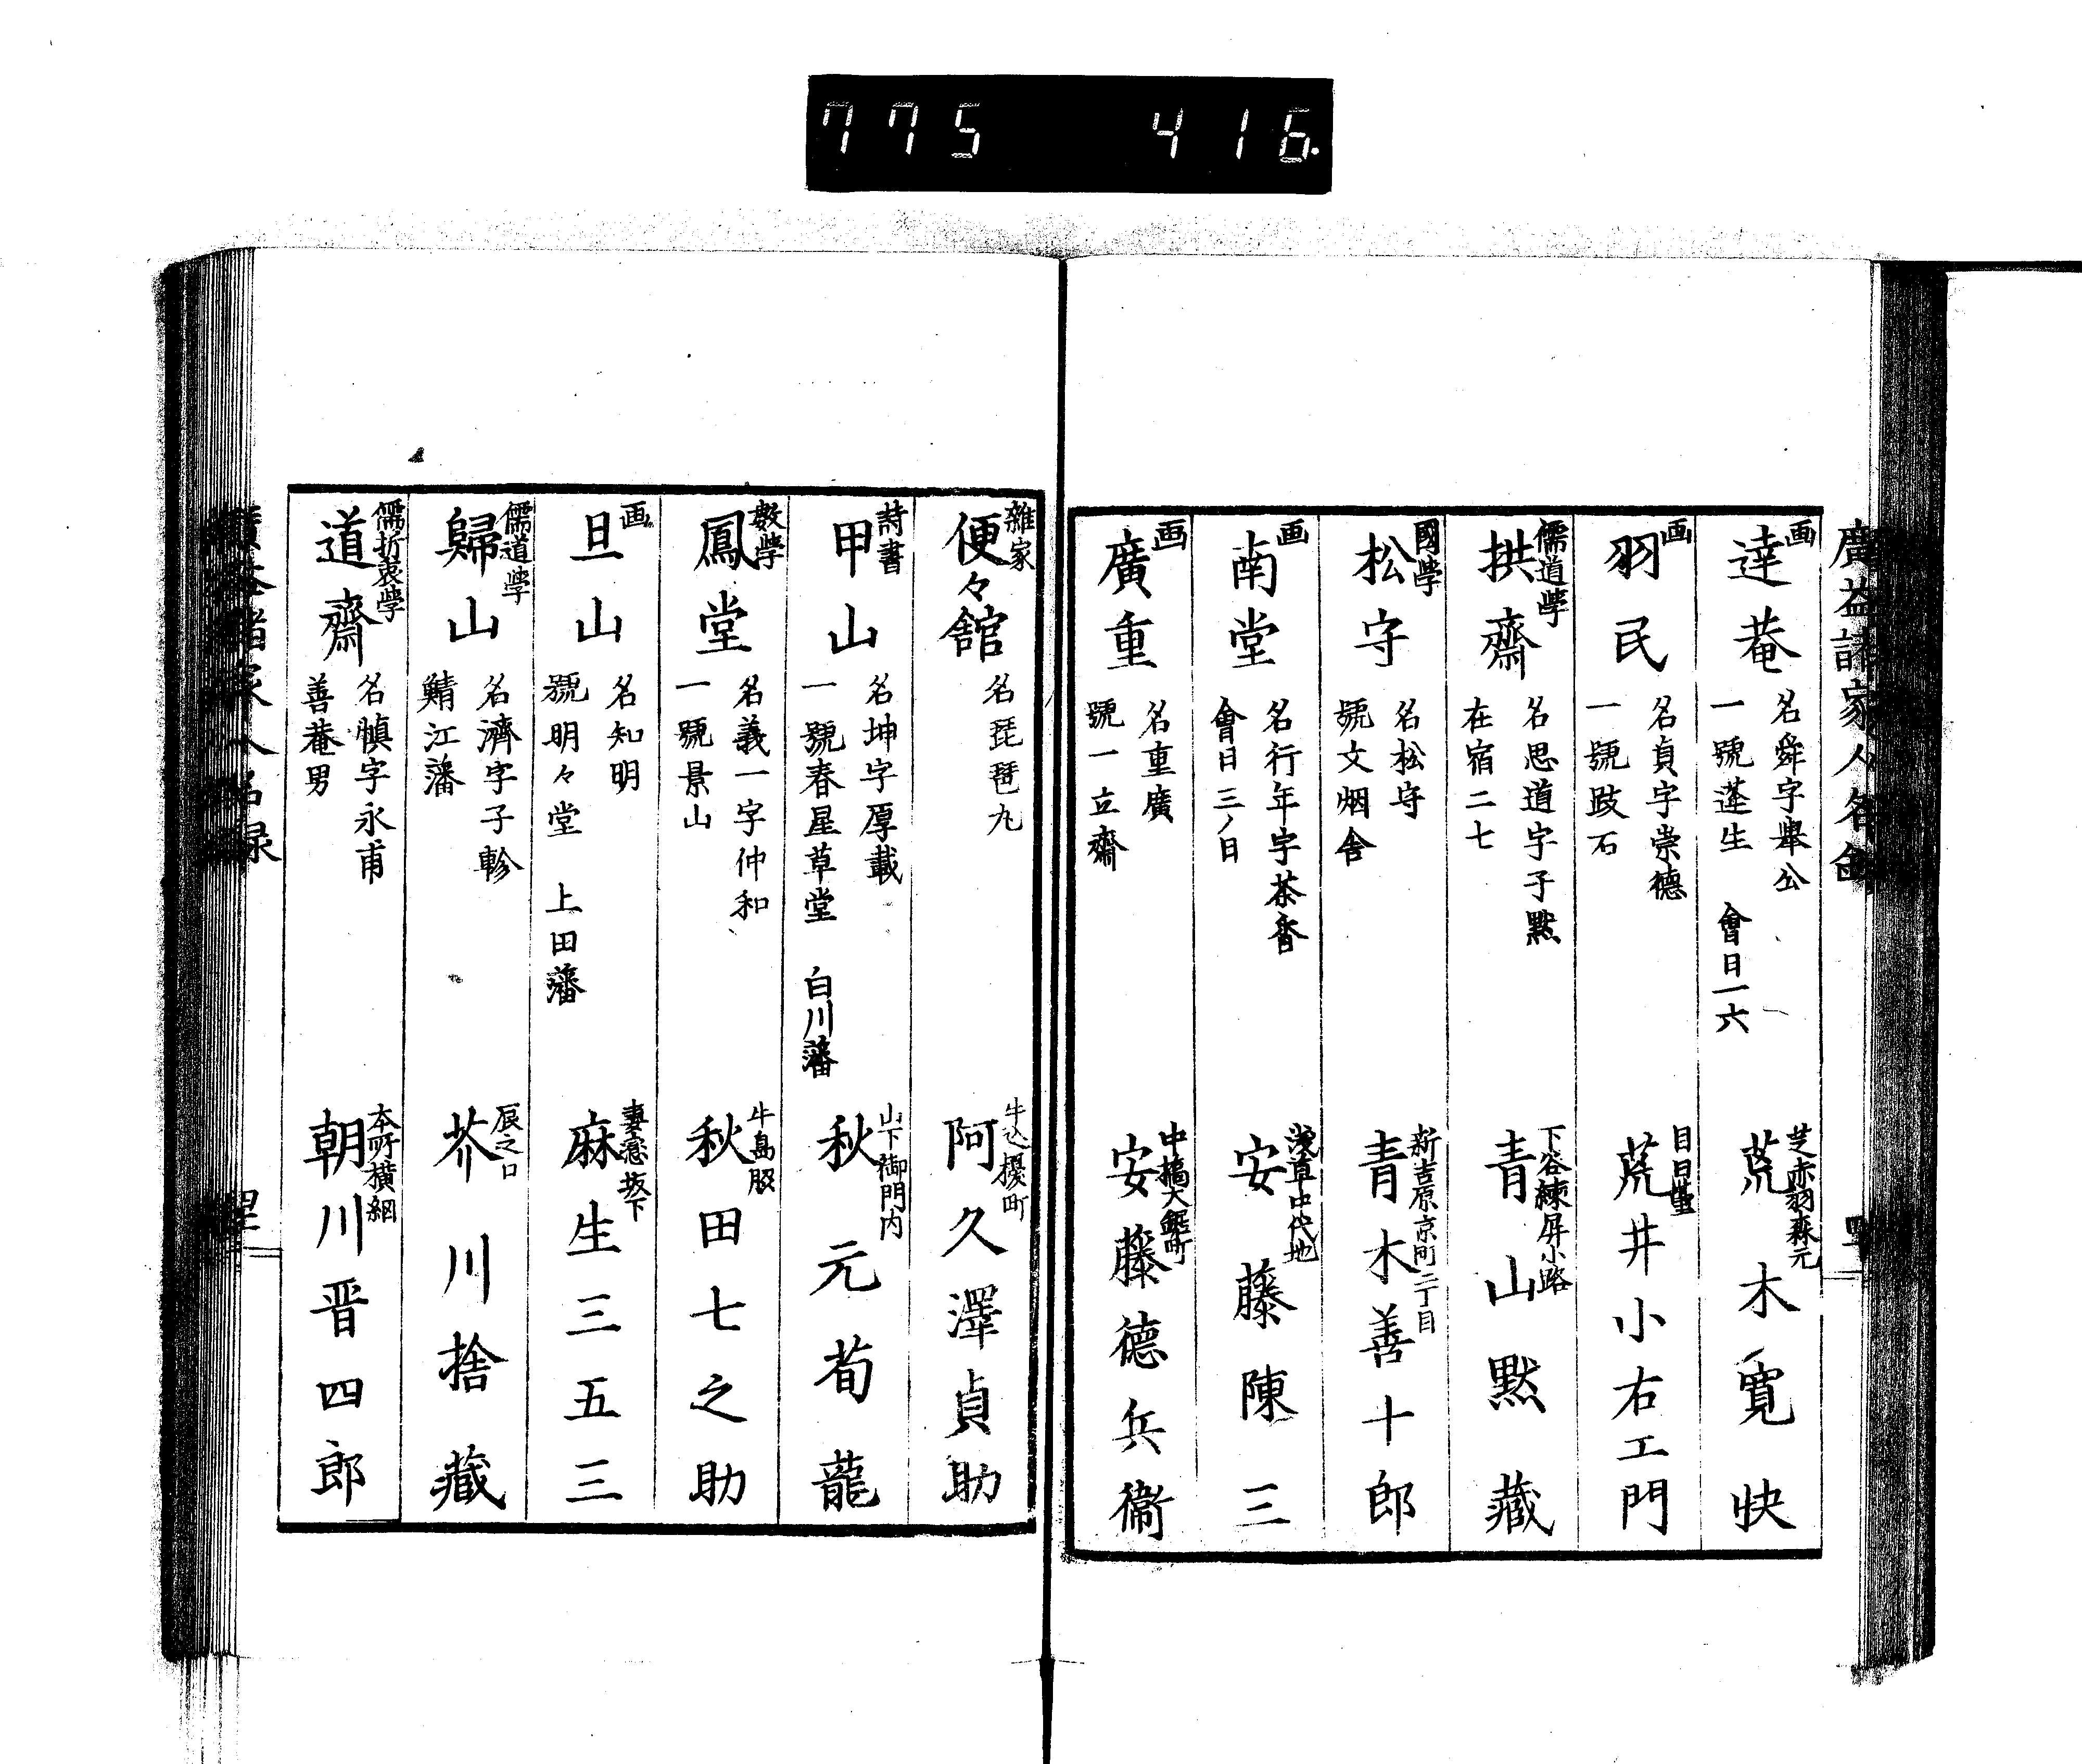 775 416.
廣益諸家人名
画
達菴
名舜字舉公
一號蓬生 會日一六
芝赤羽森元
荒木寛快
画
羽民
名貞字崇德
一號跂石
荒井小右工門
儒道學
拱齋
名思道字子默
在宿二七
下谷練屏小路
青山默藏
國學
松守
名松守
號文烟舎
新吉原京町二丁目
青木善十郎
画
南堂
名行年字茶香
會日三ノ日
淺草中代地
安藤陳三
画
廣重
名重廣
號一立齋
中橋大鋸町
安藤德兵衞
雜家
便々舘
名琵琶九
牛込榎町
阿久澤貞助
詩書
甲山
名坤字厚載
一號春星草堂 白川藩
山下御門内
秋元荀龍
數學
鳳堂
名義一字仲和
一號景山
牛島
秋田七之助
画
旦山
名知明
號明々堂 上田藩
妻恋坂下
麻生三五三
儒道學
歸山
名濟字子軫
鯖江藩
辰之口
芥川捨藏
儒折衷學
道齋
名愼字永甫
善菴男
本所横網
朝川晋四郎
廣益諸家人名録